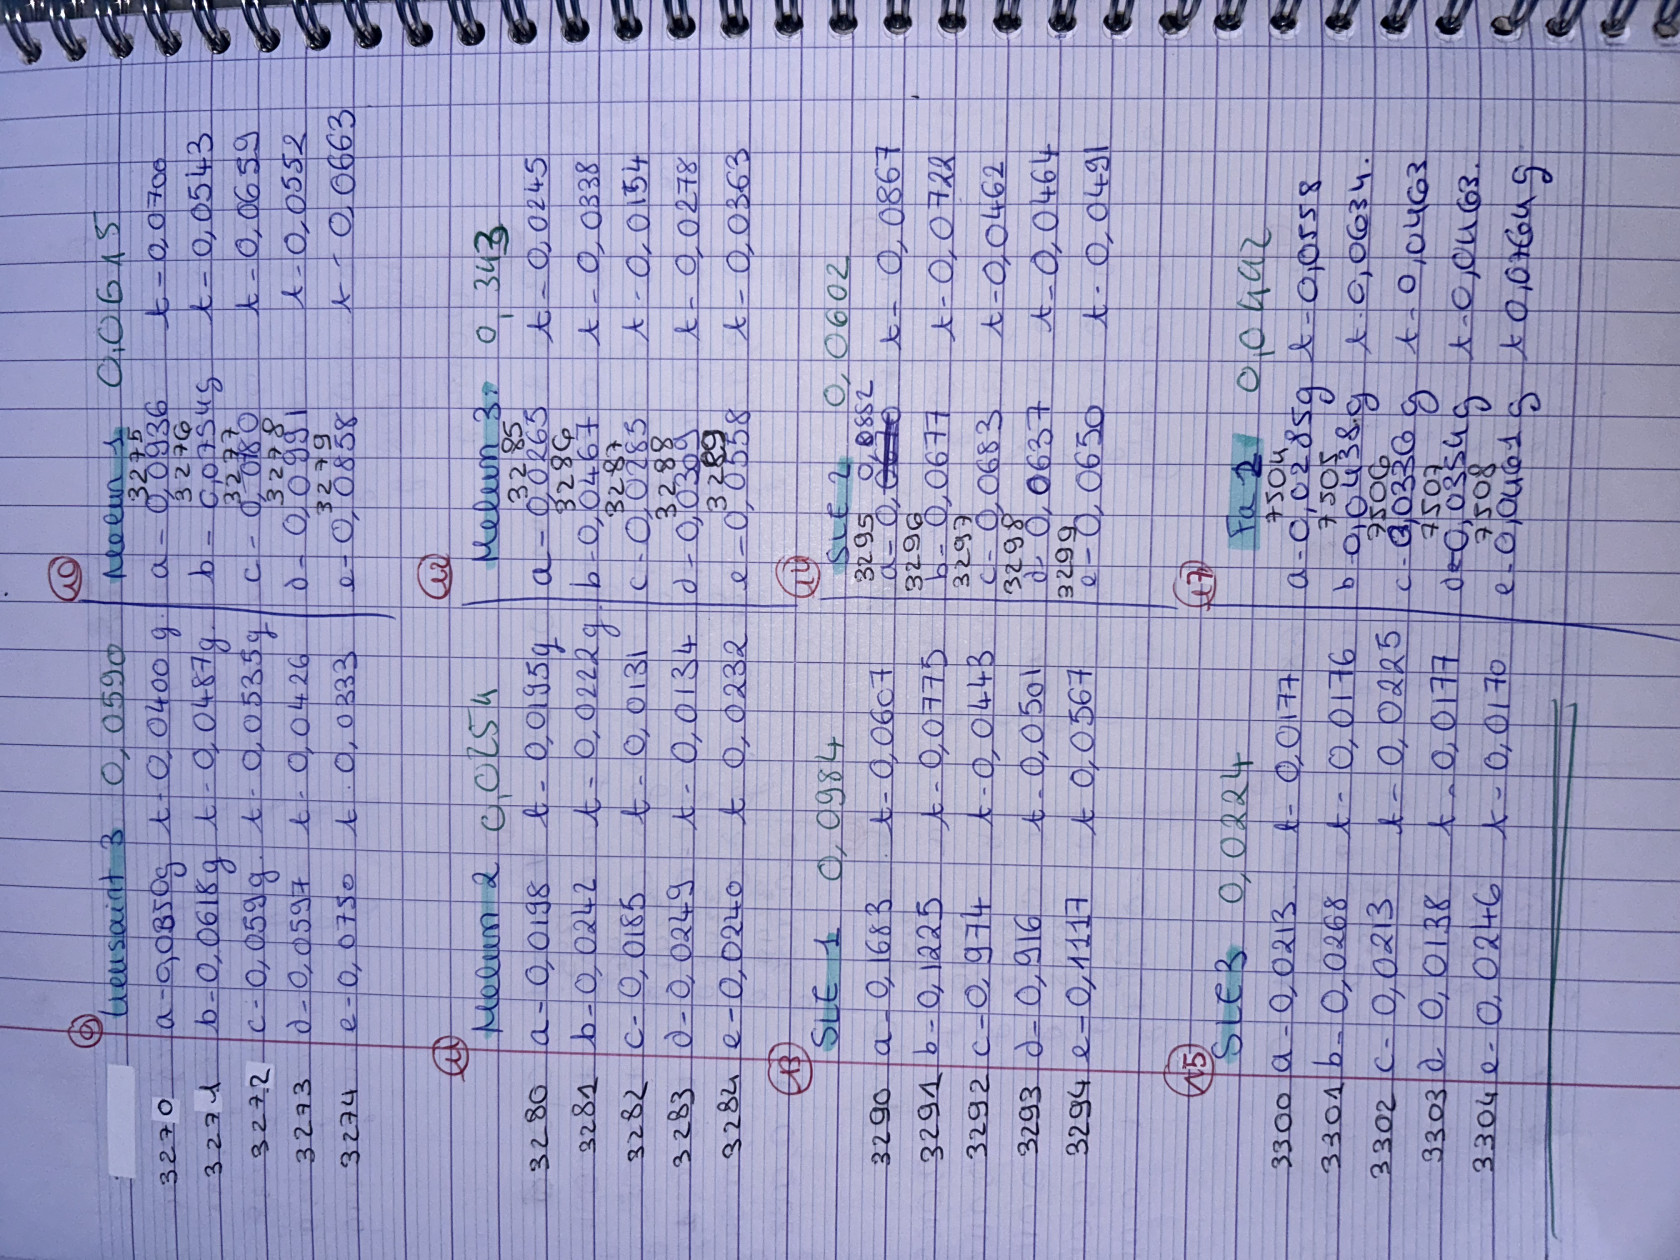 9
Meusaint 3 0,0590
3270 a-0,0850g t-0,0400 g.
3271 b-0,0618g t-0,0487g.
3272 c-0,059g. t-0,0535g
3273 d-0,0597 t-0,0426
3274 e-0,0750 t. 0,0333
10
Melun 1 0,0615
3275
a-0,0936 t-0,0700
3276
b-0,0734g t-0,0543
3277
c-0,080 t-0,0659
3278
d-0,0991 t-0,0552
3279
e-0,0858 t-0,0663
11
Melun 2 0,0254
3280 a-0,0198 t-0,0195g
3281 b-0,0242 t-0,0222g.
3282 c-0,0185 t-0,0131
3283 d-0,0249 t-0,0134
3284 e-0,0240 t 0,0232
12
Melun 3. 0,343
3285
a-0,0265 t-0,0245
3286
b-0,0467 t-0,0338
3287
c-0,0285 t-0,0154
3288
d-0,0309 t-0,0278
3289
e-0,0558 t-0,0363
13
SLE 1 0,0984
3290 a-0,1683 t-0,0607
3291 b-0,1225 t-0,0775
3292 c-0,974 t-0,0443
3293 d-0,916 t-0,0501
3294 e-0,1117 t 0,0567
14
SLE 2 0,0602
3295 0,0852
a-0,0670 t-0,0867
3296
b-0,0677 t-0,0722
3297
c-0,0683 t-0,0462
3298
d-0,0637 t-0,0464
3299
e-0,0650 t-0,0491
15
SLE 3 0,0224
3300 a-0,0213 t-0,0177
3301 b-0,0268 t-0,0176
3302 c-0,0213 t-0,0225
3303 d 0,0138 t-0,0177
3304 e-0,0246 t-0,0170
17
Fa 2 0,0442
7504
a-0,0285g t-0,0558
7505
b-0,0438g t-0,0634.
7506
c-0,0336 g t-0,0463
7507
d-0,0354g t-0,0463.
7508
e-0,0461g t 0,0764g